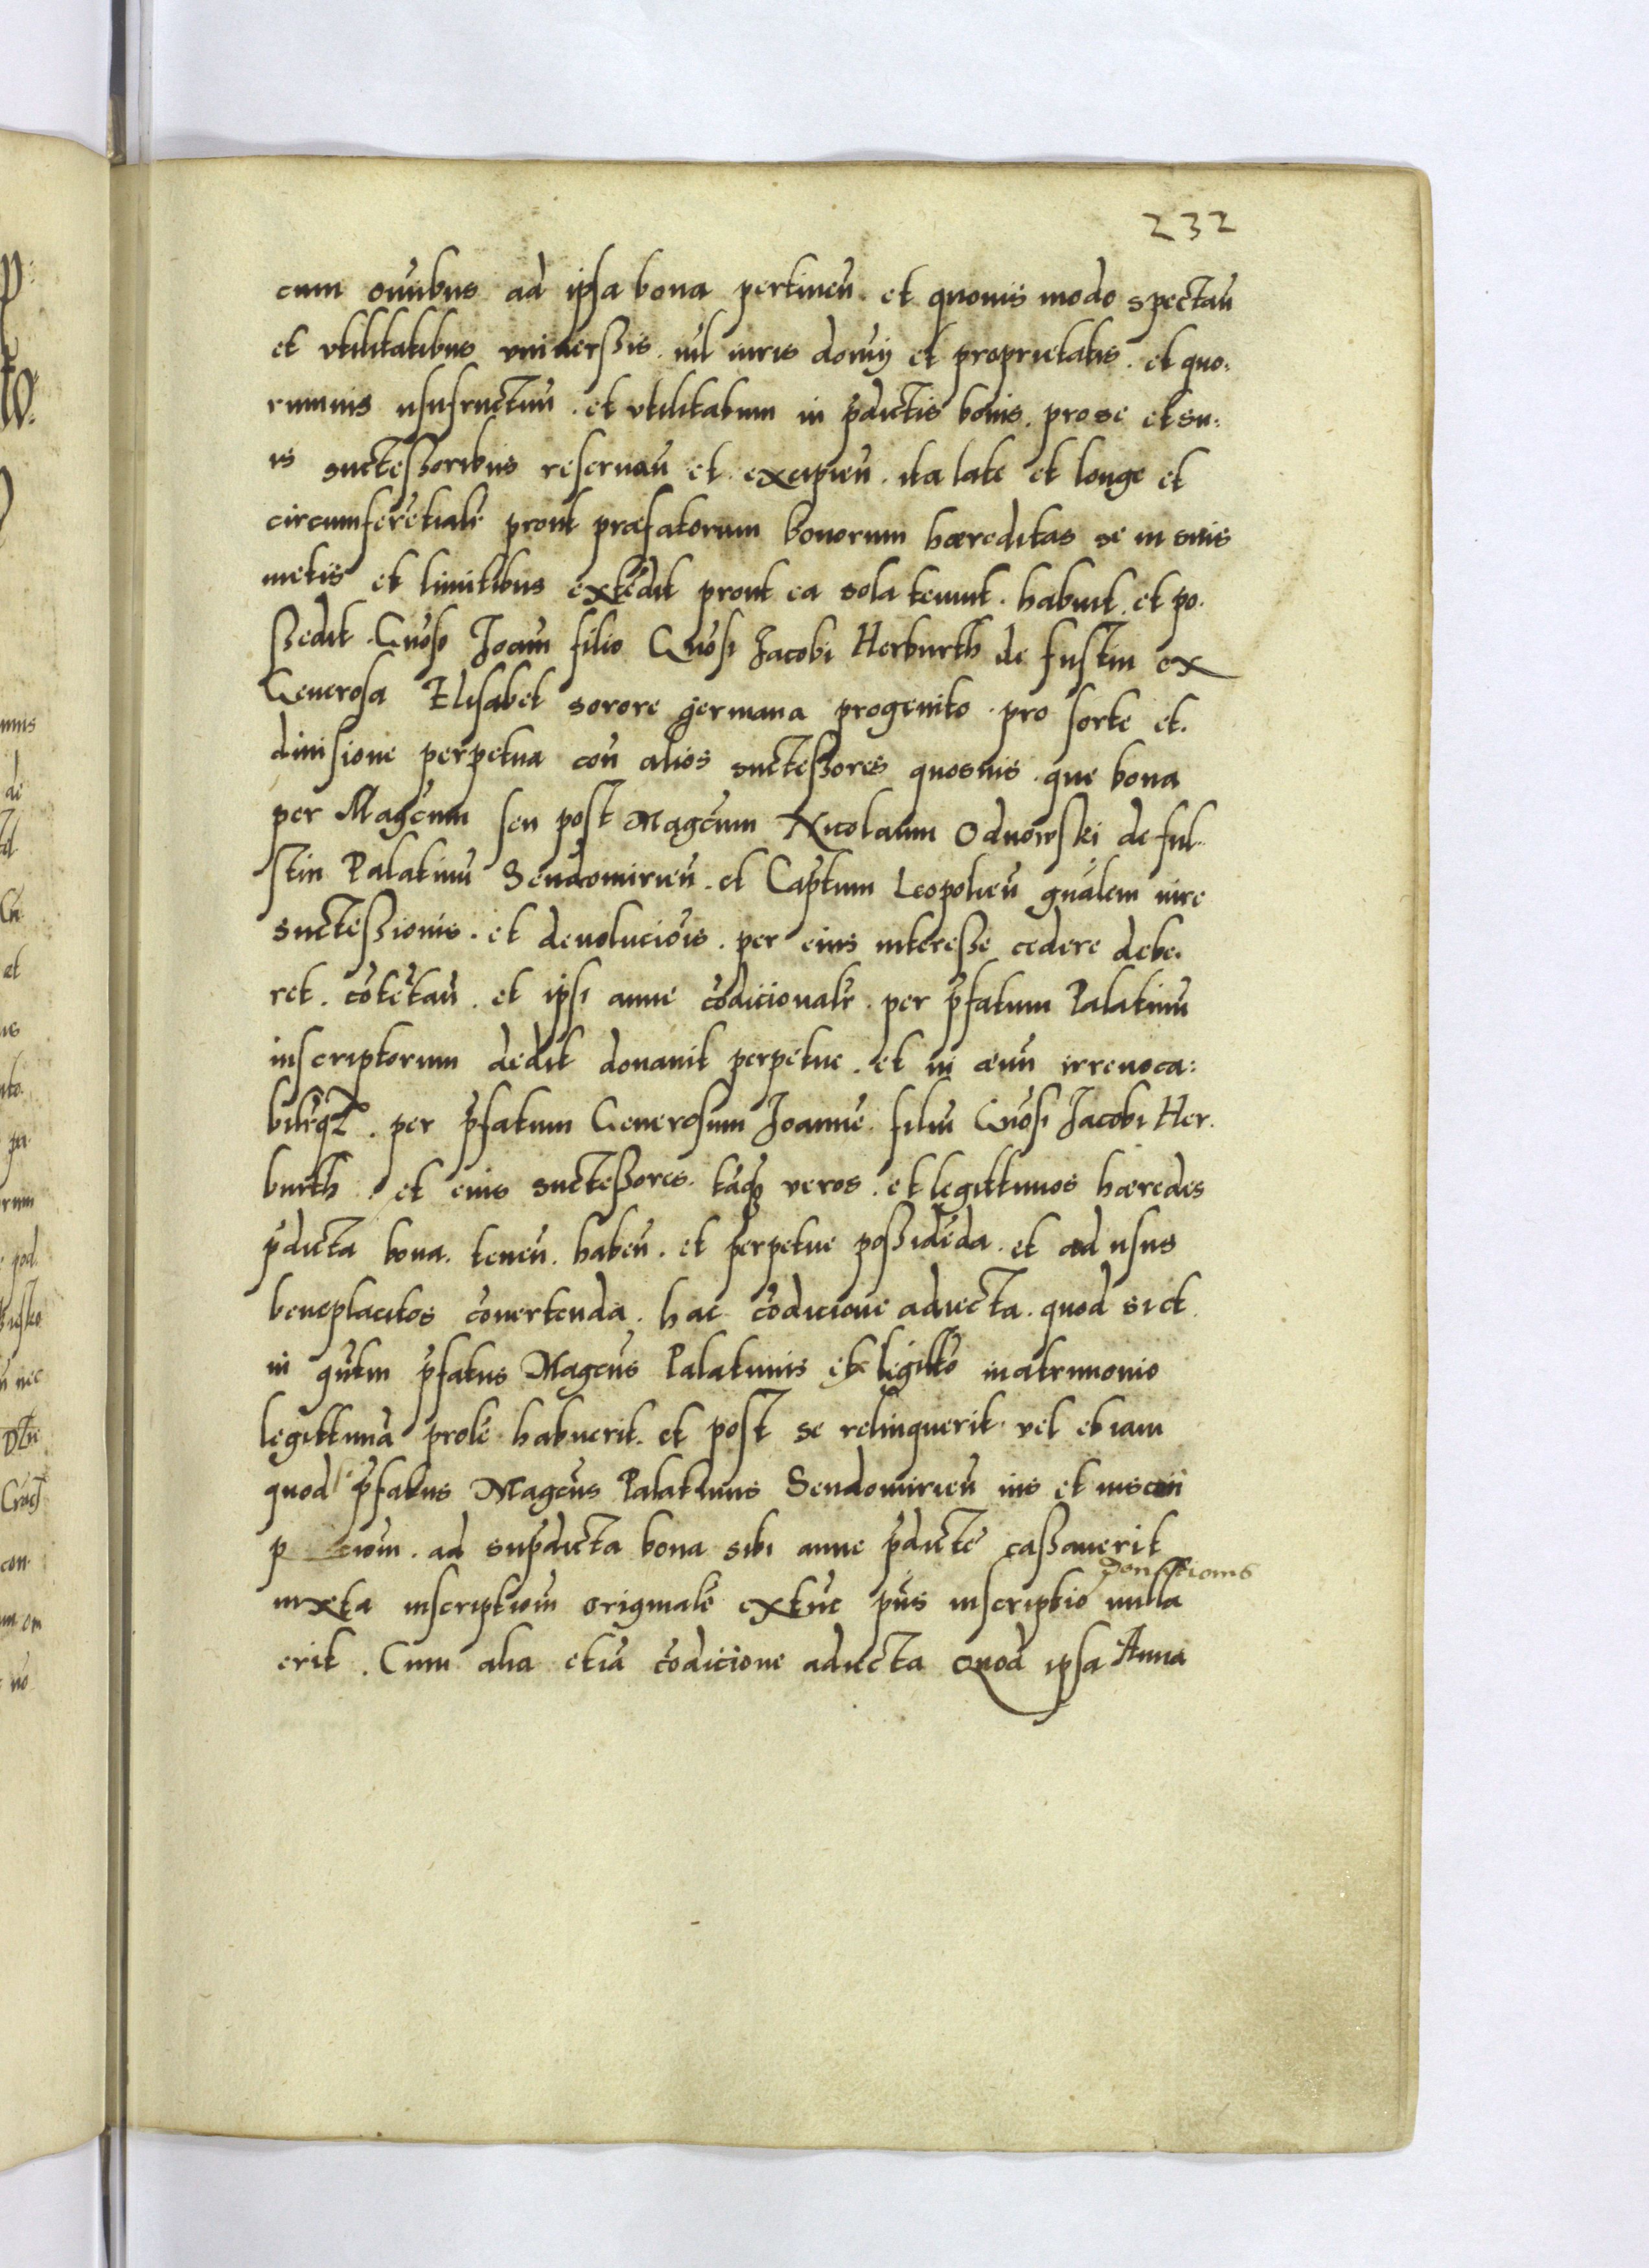 232
cum om̄ibus ad ipsa bona pertineñ. et quouis modo spectañ
et vtilitatibus vniuerssis. nil iuris domij et proprietatis. et quo:
rumuis usufructuū. et vtilitatum in p̄dictis bonis. pro se et su:
is suctessoribus reseruañ et excipieñ. ita late et longe et
circumferēcialr̄ prout præfatorum bonorum hæreditas se in suis
metis et limitibus extēdit prout ea sola tenuit. habuit. et po.
ssedit. Gn̄oso Joañi filio Gn̄osi Jacobi Herburth de fustin ex
Generosa Elisabet sorore germana progenito. pro sorte et.
diuisione perpetua con̄ alios suctessores quosuis. que bona
per Magcum seu post Magcum Nicolaum Odnowski de ful.
stin Palatinū Sendomirieñ. et Captum Leopolieñ gnālem iure
suctessionis. et deuolucion̄is. per eius interesse cedere debe.
ret. cōtētañ. et ipsi anne cōdicionalr̄. per p̄fatum Palatinū
inscriptorum dedit donauit perpetue. et in æuū irreuoca:
bilr̄ . per p̄fatum Generosum Joannē. filiū Gn̄osi Jacobi Her.
burth. et eius suctessores. tāqȝ veros. et legittimos hæredes
p̄dicta bona. teneñ. habeñ. et perpetue possidēda. et ad usus
beneplacitos cōuertenda. hac cōdicione adiecta. quod si et
in qn̄tm p̄fatus Magcus Palatinus ex legitto matrimonio
legittimā prolē habuerit. et post se relinquerit. vel etiam
quod p̄fatus Magcus Palatinus Sendomirieñ ius et
ad sup̄dicta bona sibi anne p̄dictē cassauerit
Donationis
iuxta inscriptioñ originalē extūc p̄ns inscriptio nulla
erit. Cum alia etiā cōdicione adiecta Quod ipsa Anna